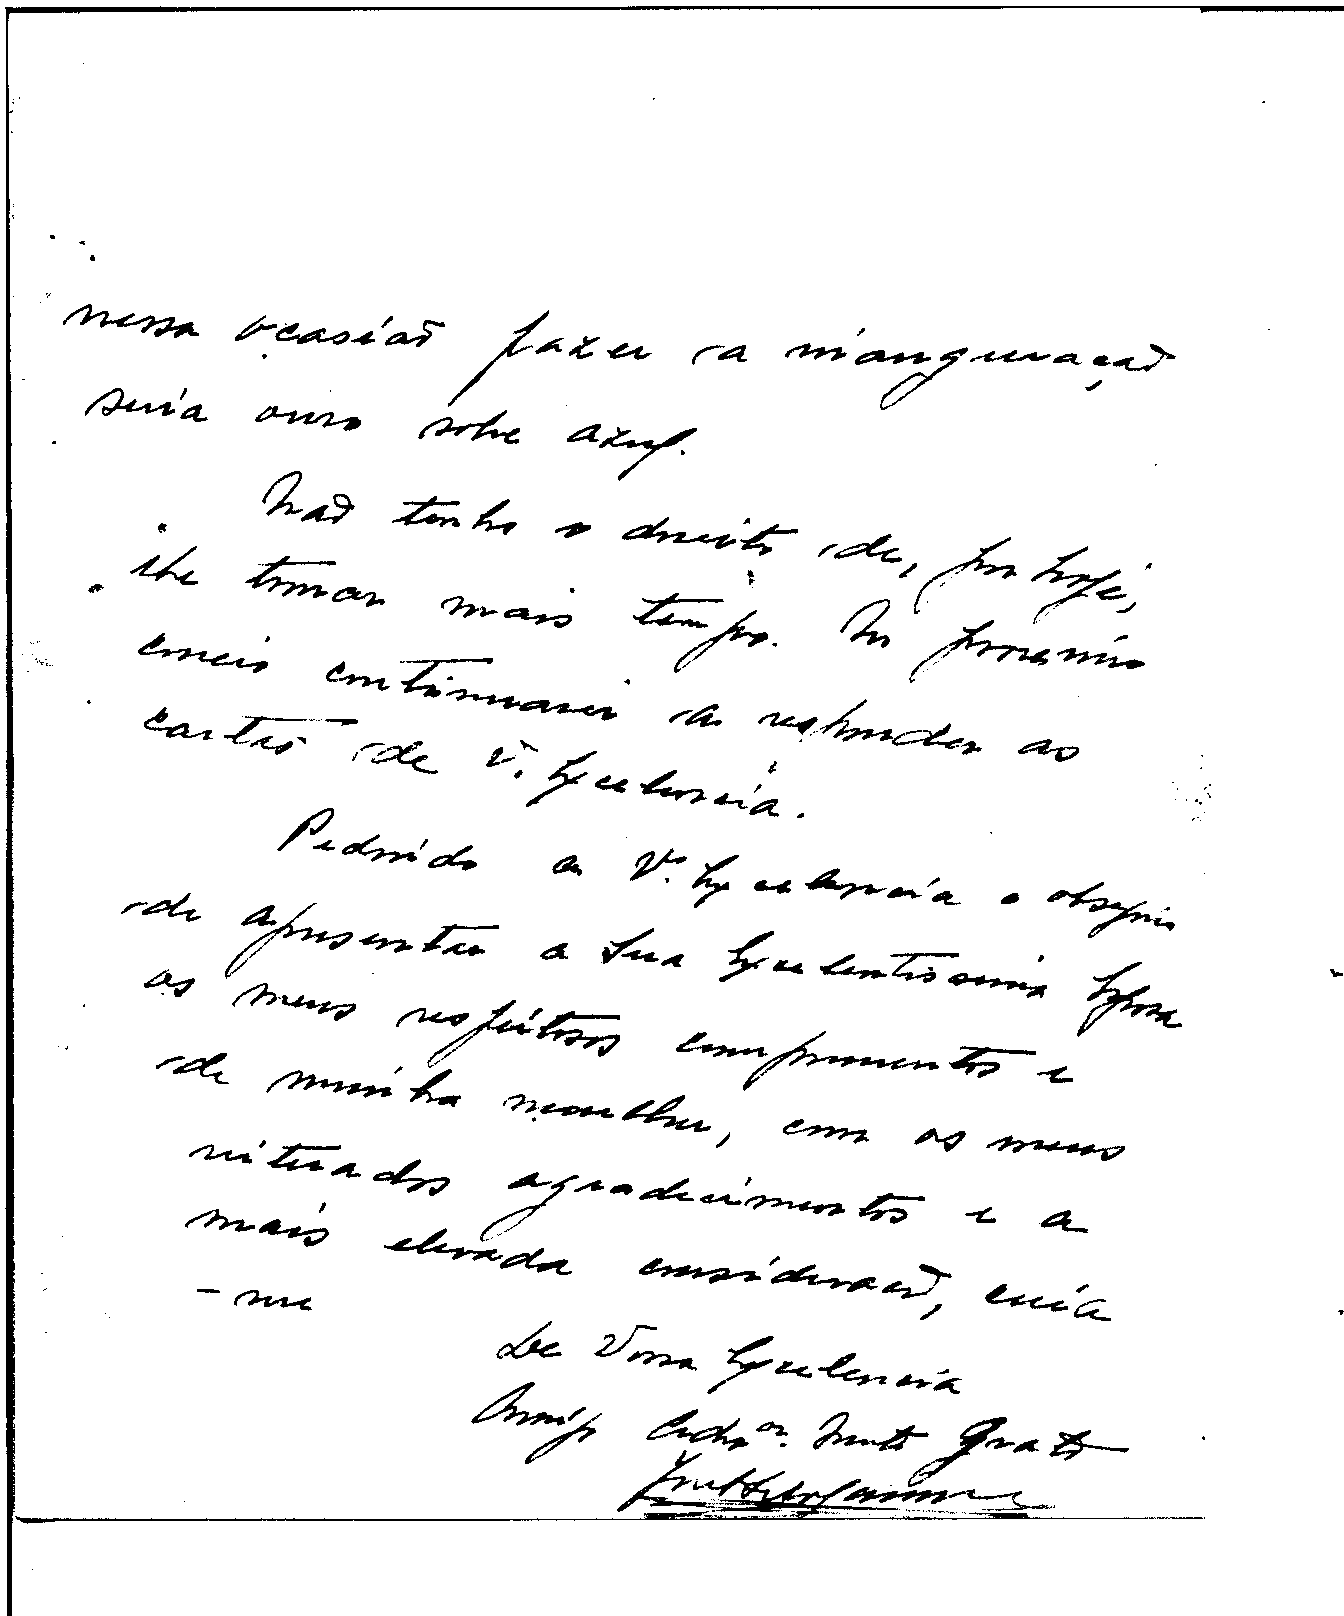 nessa ocasião fazer a inauguração
seria ouro sobre azul.
Não tenho o direito de, por hoje,
lhe tomar mais tempo. No proximo
correio continuarei a responder as
cartas de V. Excelencia.
Pedindo a V. Excelencia o obsequio
de apresentar a Sua Excelentissima Esposa
os meus respeitosos cumprimentos e
de minha mulher, com os meus
reiterados agradecimentos e a
mais elevada consideração, creia
-me
De Vossa Excelencia
Amigo Crdo. Muito Grato